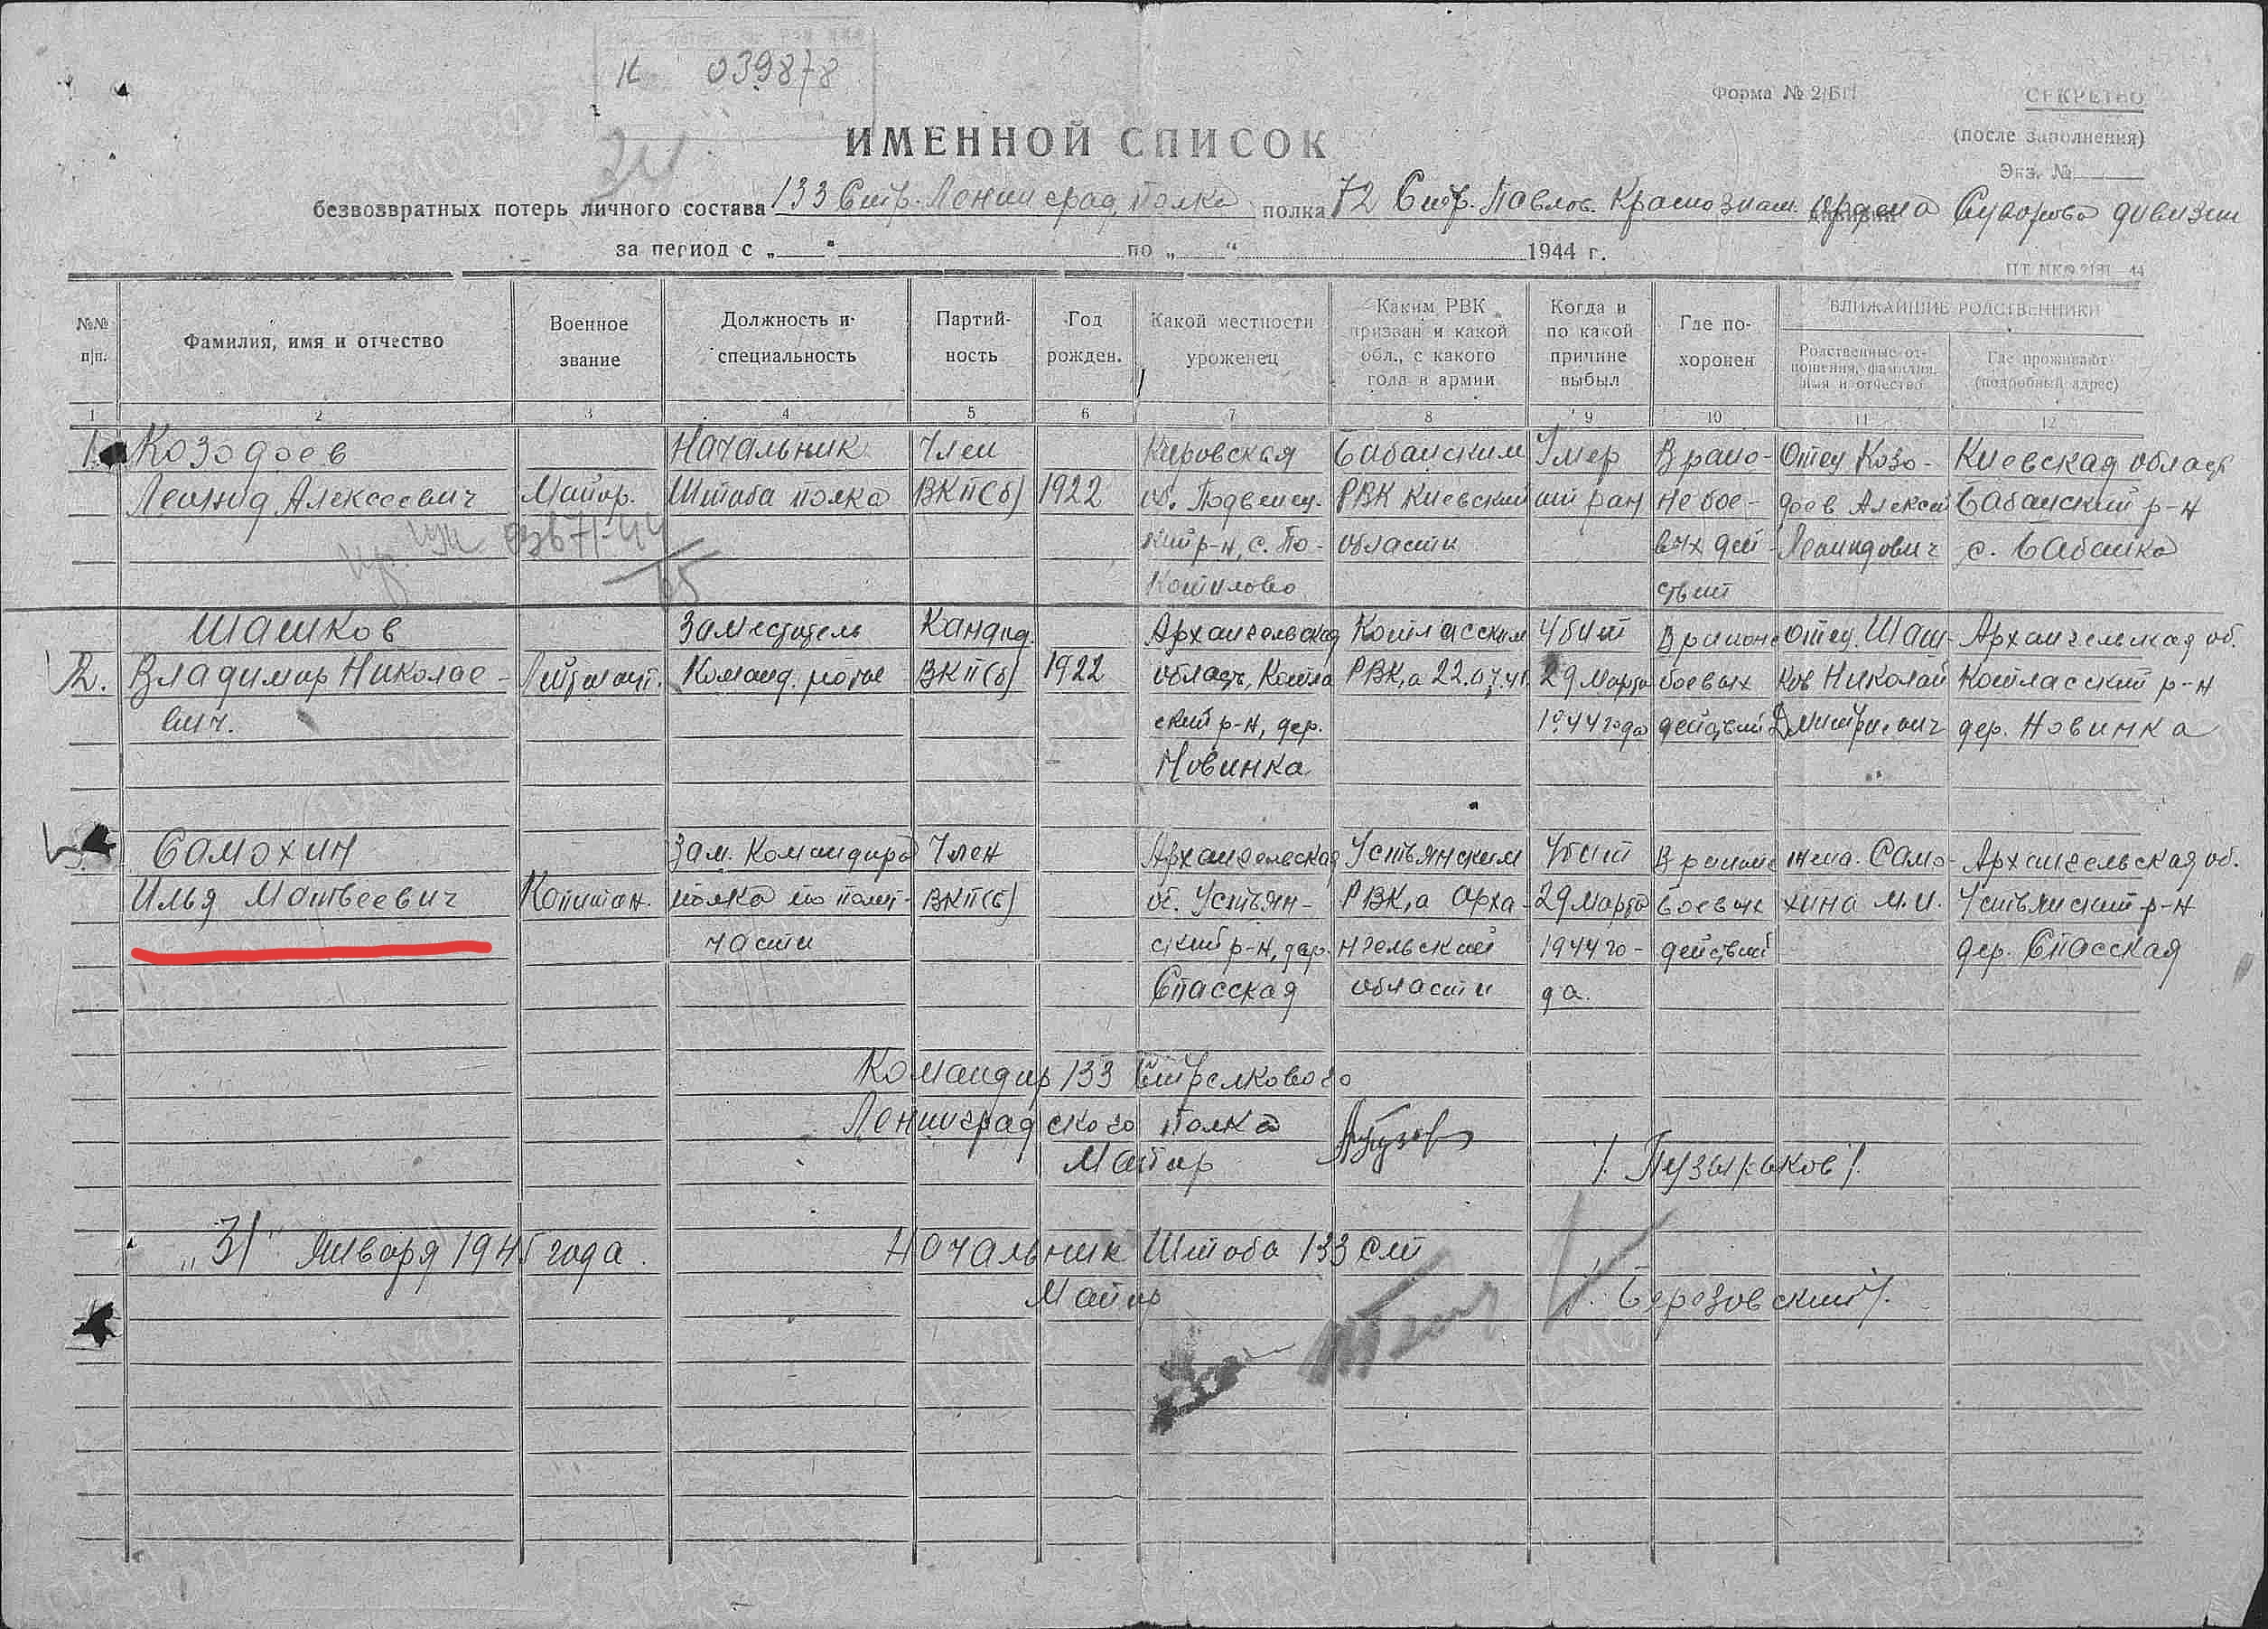 н 039878
Форма № 2/БП
СЕКРЕТНО
(после заполнения)
Экз. №
ИМЕННОЙ СПИСОК
безвозвратных потерь личного состава 133 Стр. Ленинград. полка полка 72 Стр. Павлов. Краснознам. ордена Суворова дивизии
за период с „ “ по „ “ 1944 г.
№№ п/п.
Фамилия, имя и отчество
Военное звание
Должность и специальность
Партийность
Год рожден.
Какой местности уроженец
Каким РВК призван и какой обл., с какого года в армии
Когда и по какой причине выбыл
Где похоронен
БЛИЖАЙШИЕ РОДСТВЕННИКИ
Родственные отношения, фамилия, имя и отчество
Где проживают (подробный адрес)
1 2 3 4 5 6 7 8 9 10 11 12
1. Козодоев Начальник Член Кировская Бабанским Умер В райо- Отец Козо- Киевская област
Леонид Алексеевич Майор. Штаба полка ВКП(б) 1922 об. РВК Киевский от ран не бое- доев Алексей Бабанский р-н
р-н, с. По- области вых дей- Леонидович с. Бабанка
ствий
Шашков Заместитель Кандид. Архангельская Котласским Убит В районе отец. Шаш- Архангельская об.
2. Владимир Николае- Лейтенант. Команд. роты ВКП(б) 1922 область, Котла РВК, а 22.07.41 29 марта боевых ков Николай Котласский р-н
вич. ский р-н, дер. 1944 года действий Дмитриевич дер. Новинка
Новинка
3. Самохин Зам. Командира Член Архангельская Устьянским Убит В районе жена. Само- Архангельская об.
Илья Матвеевич Капитан. полка по полит- ВКП(б) об. Устьян- РВК, а Арха- 29 марта боевых хина М.И. Устьянский р-н
части ский р-н, дер. нгельский 1944 го- действий дер. Спасская
Спасская области да.
Командир 133 Стрелкового
Ленинградского полка
Майор / Пузырьков /.
„31“ Января 1945 года. Начальник Штаба 133 сп
Майор /. Березовский /.